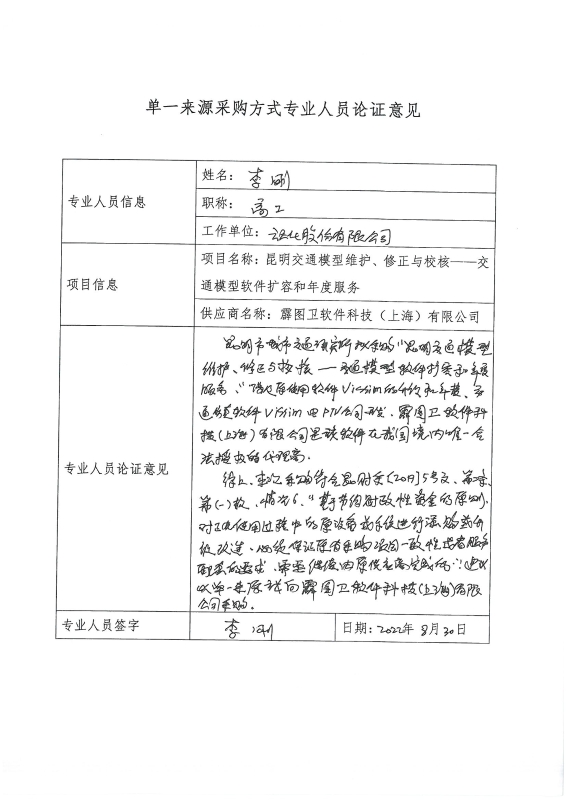 单一来源采购方式专业人员论证意见
专业人员信息
姓名：李刚
职称：高工
工作单位：云化股份有限公司
项目信息
项目名称：昆明交通模型维护、修正与校核——交
通模型软件扩容和年度服务
供应商名称：霹图卫软件科技（上海）有限公司
专业人员论证意见
昆明市城市交通研究所拟采购“昆明交通模型
维护、修正与校核——交通模型软件扩容和年度
服务”，原使用软件Vissim的升级和年费，交
通仿真软件Vissim由PTV公司开发，霹图卫软件科
技(上海)有限公司是该软件在我国境内唯一合
法授权的代理商。
综上，本次采购符合昆财采5号文，第
第(一)款，情况6，“基于节约财政性资金的原则，
对正使用过程中的原设备或系统进行添购或升
级改造，必须保证原有采购项目一致性或者服务
配套的要求，需要继续由原供应商完成的”；建议
以单一来源方式向霹图卫软件科技(上海)有限
公司采购。
专业人员签字
李刚
日期：2022年8月30日